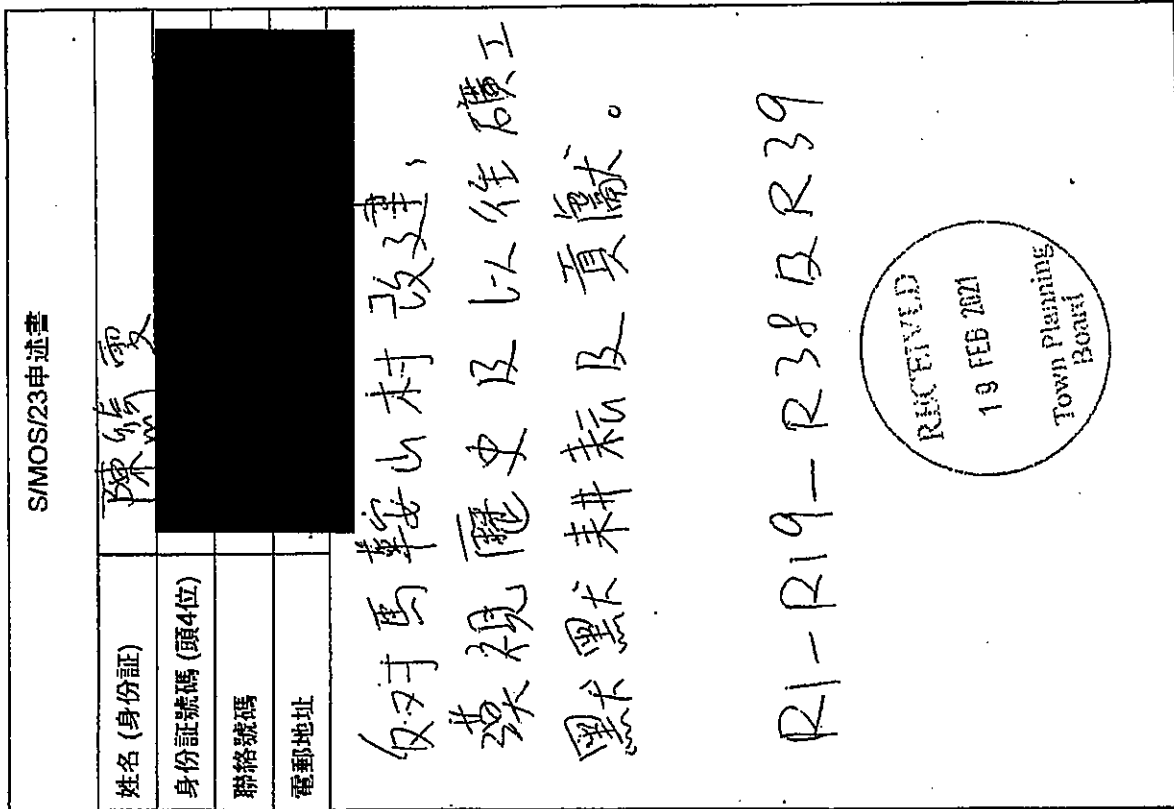 S/MOS/23申述書
姓名 (身份証)
陳
雯
身份証號碼 (頭4位)
聯絡號碼
電郵地址
反对馬鞍山村改建，
蔑視歷史及以往礦工
默默耕耘及貢獻。
R1-R19-R38 & R39
RECEIVED
19 FEB 2021
Town Planning
Board